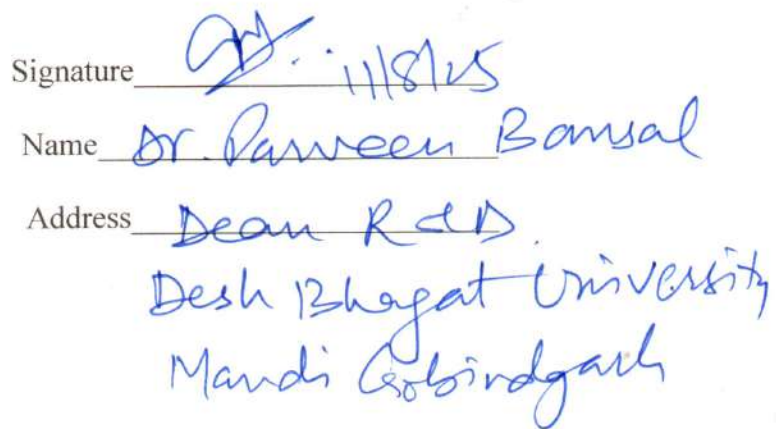 Signature 11/8/25
Name Dr. Parveen Bansal
Address Dean R & D
Desh Bhagat University
Mandi Gobindgarh